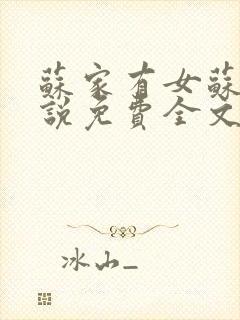 蘇家有女蘇
說免費全文
冰山_